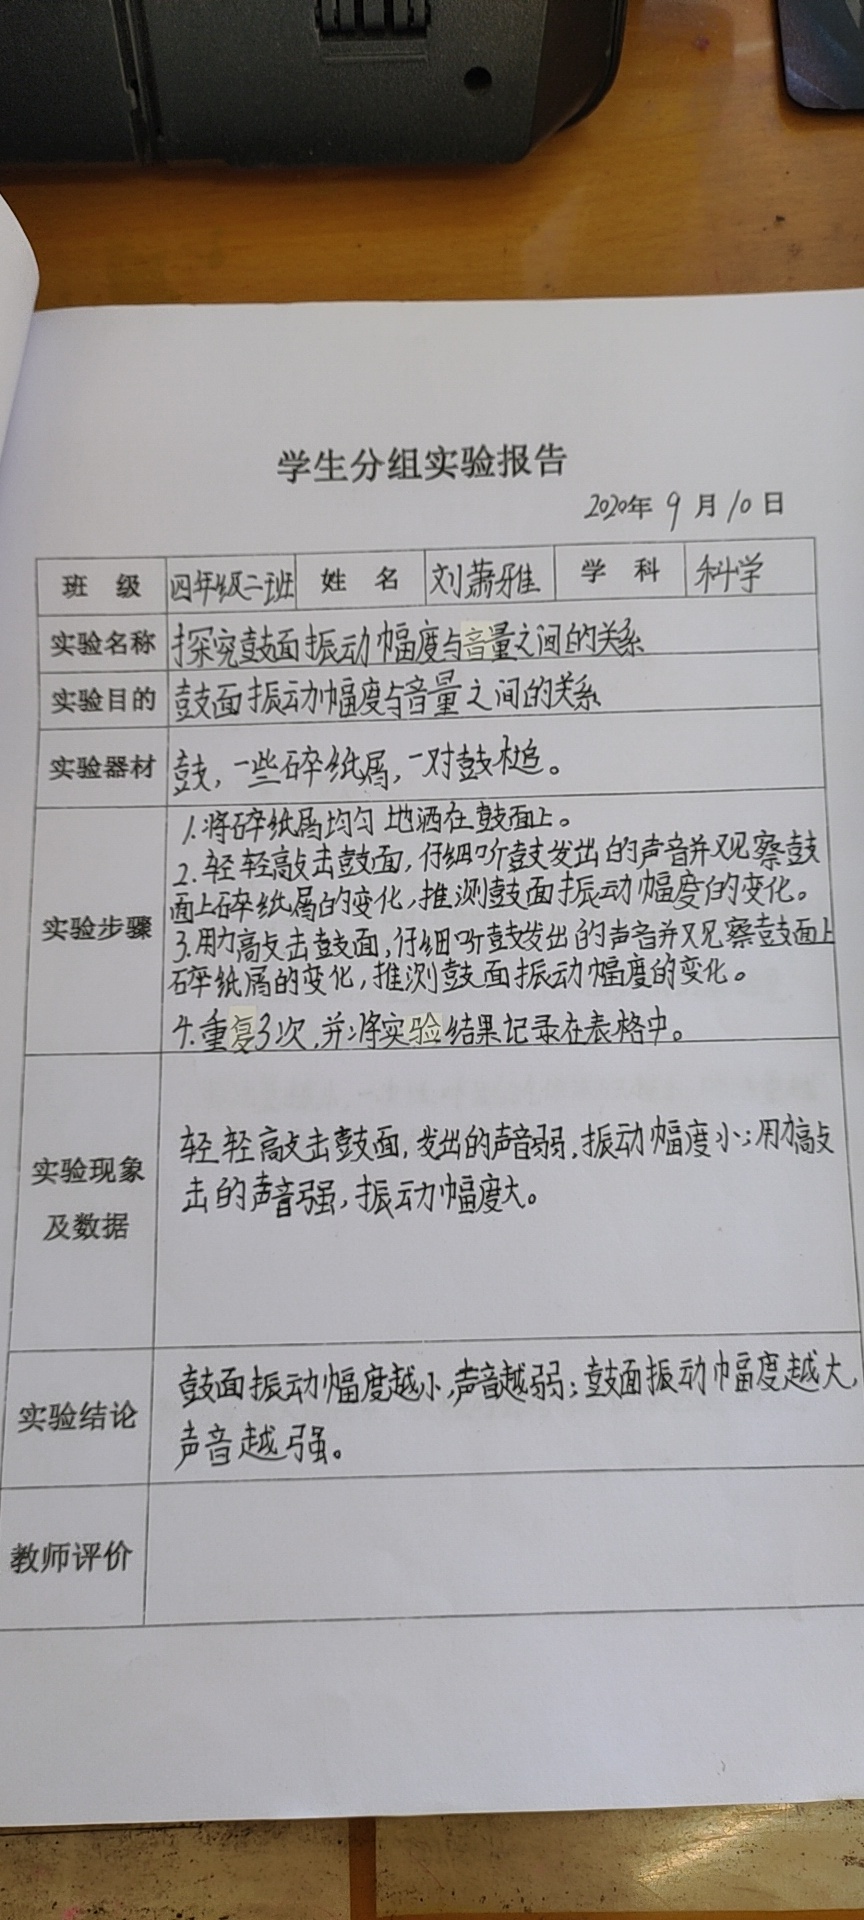 学生分组实验报告
2020年9月10日
班 级 四年级二班 姓 名 刘萧雅 学 科 科学
实验名称 探究鼓面振动幅度与音量之间的关系
实验目的 鼓面振动幅度与音量之间的关系
实验器材 鼓，一些碎纸屑，一对鼓槌。
实验步骤
1.将碎纸屑均匀地洒在鼓面上。
2.轻轻敲击鼓面，仔细听鼓发出的声音并观察鼓
面上碎纸屑的变化，推测鼓面振动幅度的变化。
3.用力敲击鼓面，仔细听鼓发出的声音并观察鼓面上
碎纸屑的变化，推测鼓面振动幅度的变化。
4.重复3次，并将实验结果记录在表格中。
实验现象
及数据
轻轻敲击鼓面，发出的声音弱，振动幅度小；用力敲
击的声音强，振动幅度大。
实验结论
鼓面振动幅度越小，声音越弱；鼓面振动幅度越大，
声音越强。
教师评价